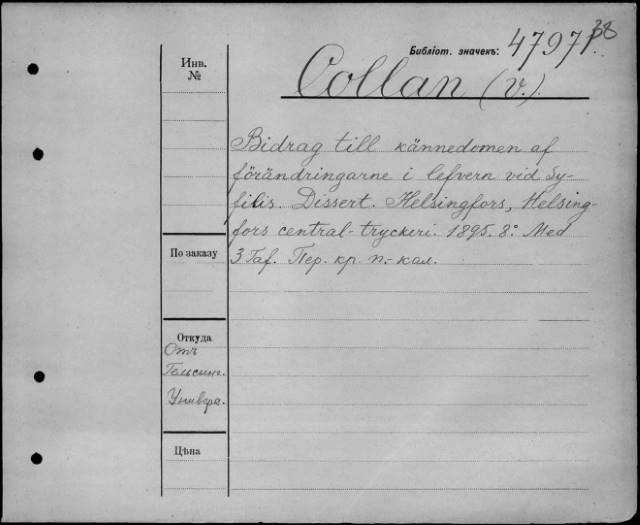 38
Библіот. значекъ: 47971.
Инв. №
Collan (V.).
Bidrag till kännedomen af
förändringarne i lefvern vid Sy-
filis. Dissert. Helsingfors, Helsing-
fors central-tryckeri. 1895. 8°. Med
3 Taf. Пер. кр. п.-кал.
По заказу
Откуда
Отъ
Гельсинг.
Универс.
Цѣна